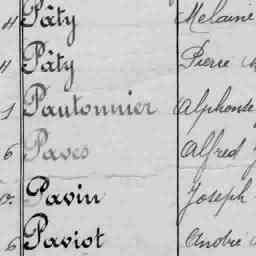 4 Pâty Melaine
4 Pâty Pierre
1 Pautonnier Alphonse
6 Paves Alfred
Pavin Joseph
6 Paviot André